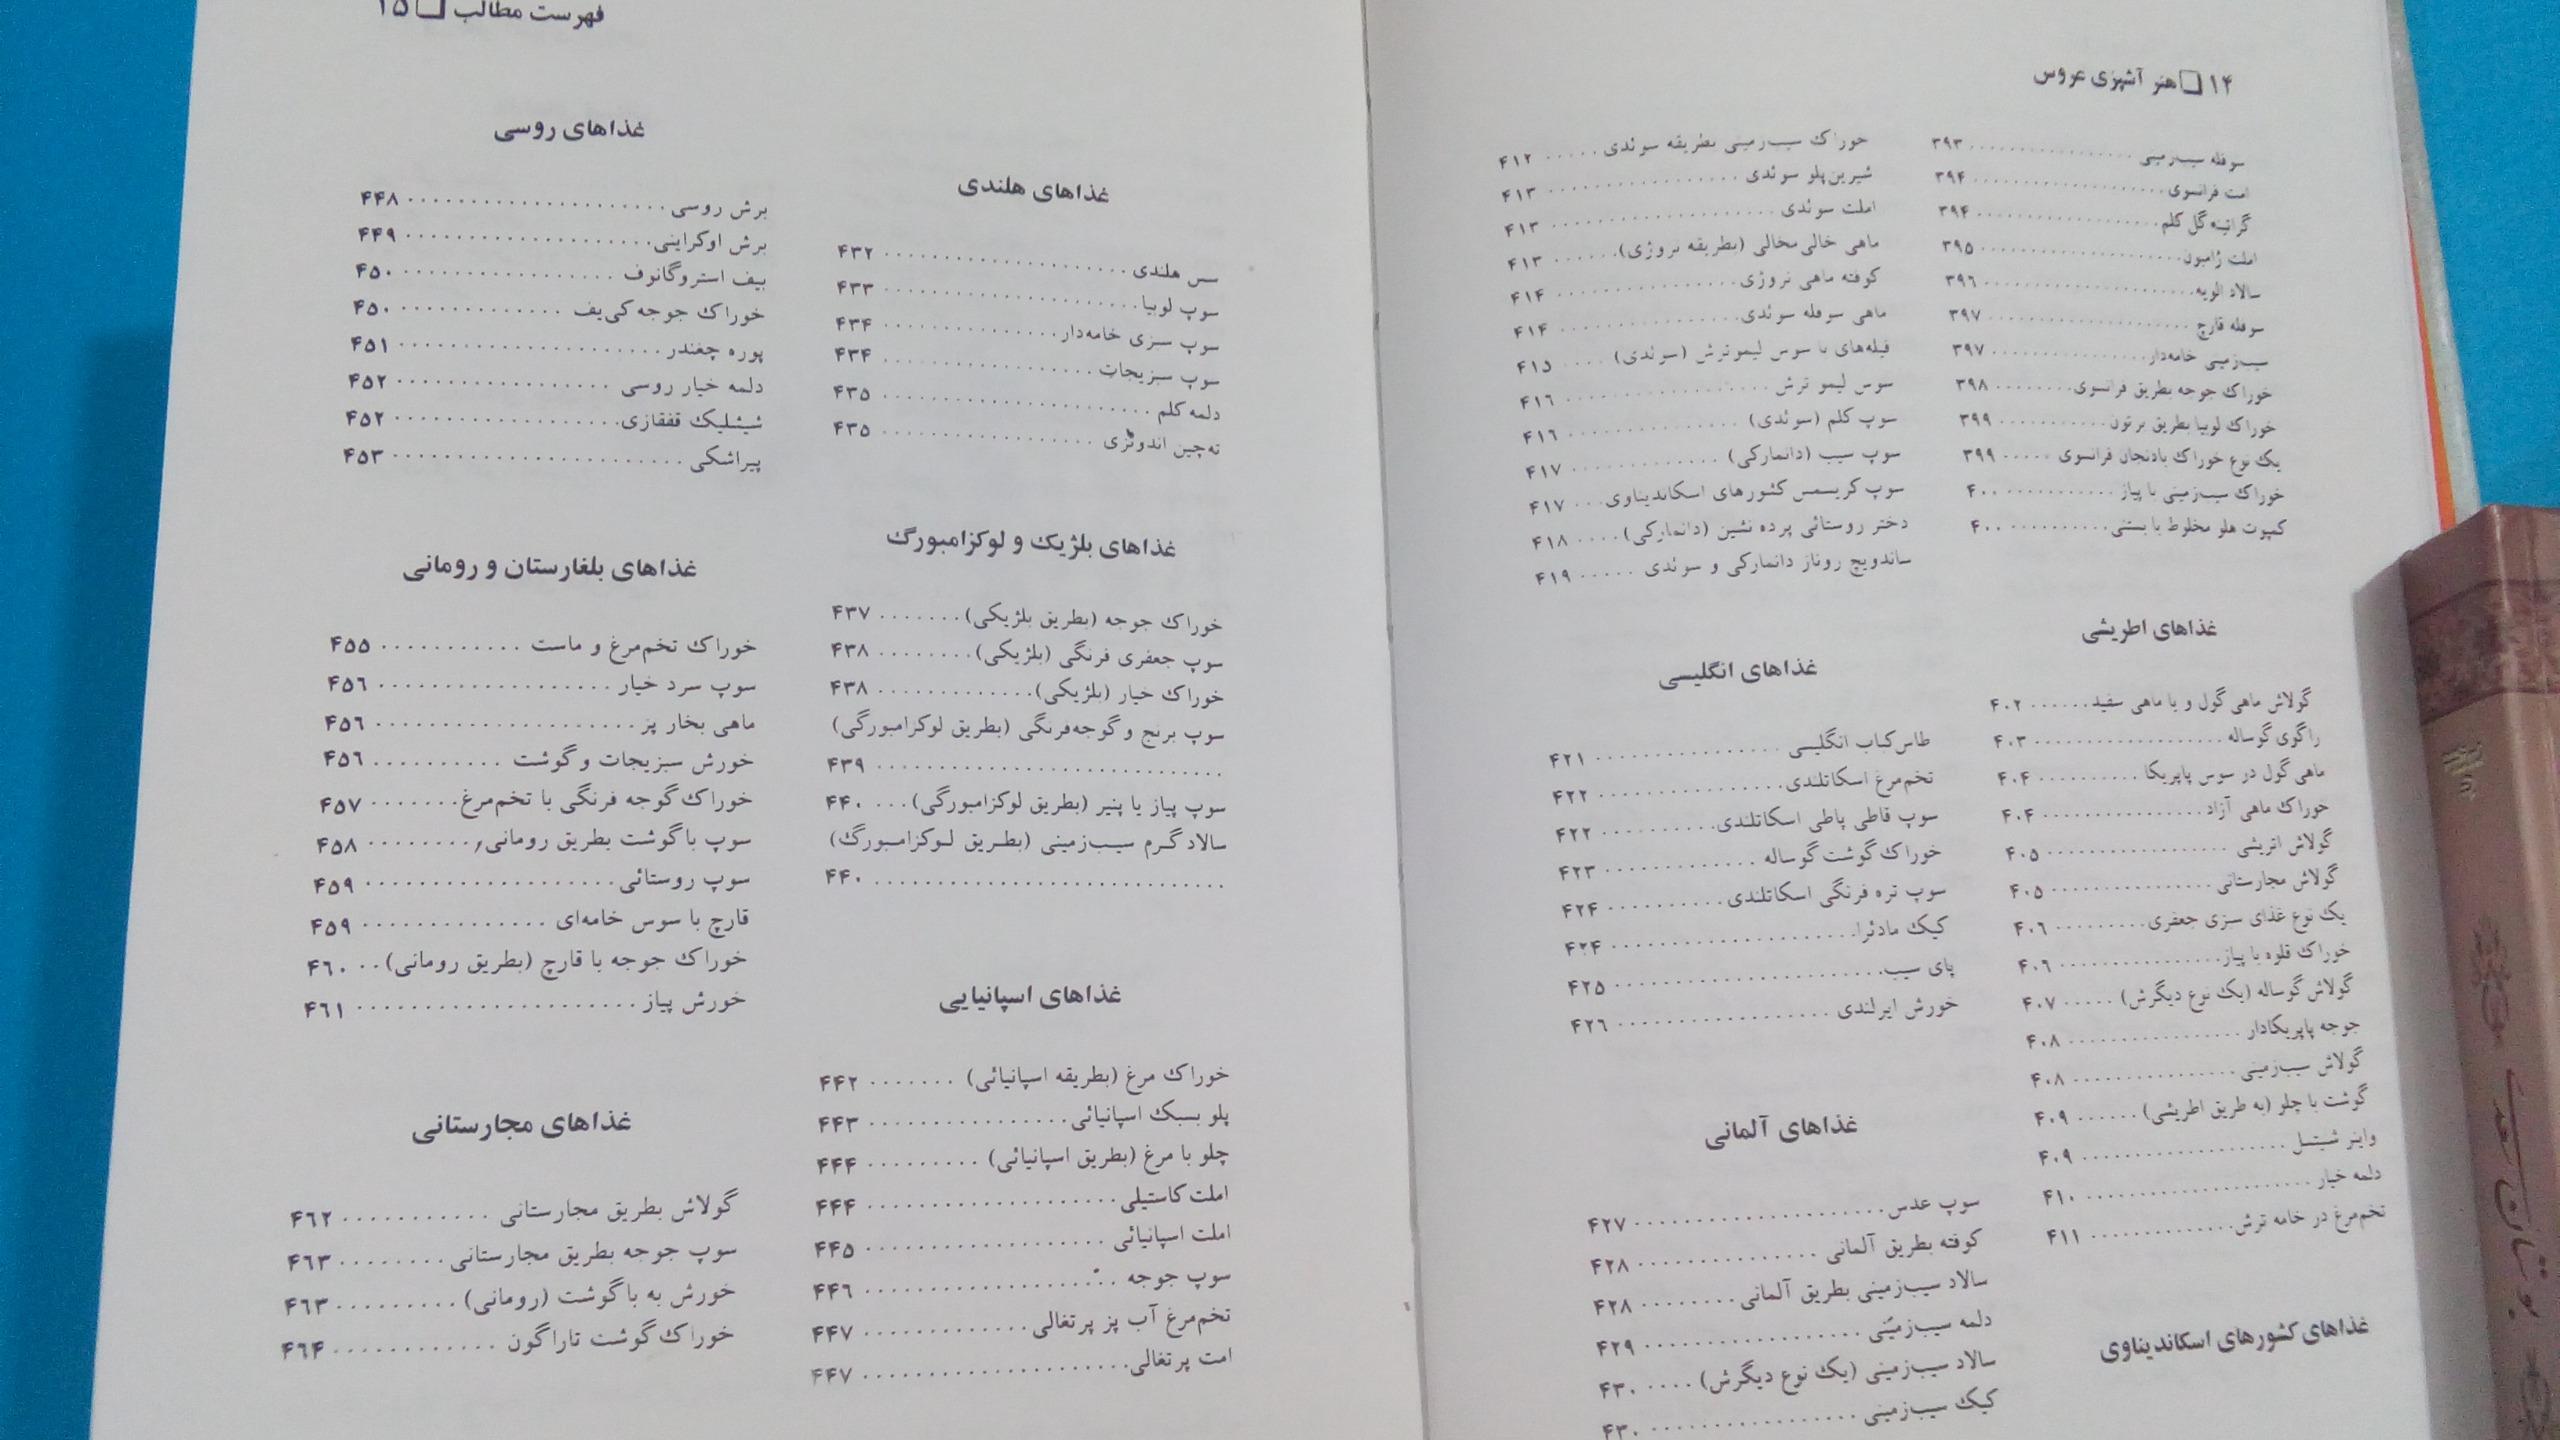 ۱۴ ❏ هنر آشپزی عروس
سوفله سیب‌زمینی ................ ۳۹۳
املت فرانسوی .................... ۳۹۴
گراتینه گل کلم ................... ۳۹۴
املت ژامبون ..................... ۳۹۵
سالاد الویه ....................... ۳۹۶
سوفله قارچ ...................... ۳۹۷
سیب‌زمینی خامه‌دار ............... ۳۹۷
خوراک جوجه بطریق فرانسوی ........ ۳۹۸
خوراک لوبیا بطریق برتون ........... ۳۹۹
یک نوع خوراک بادنجان فرانسوی ..... ۳۹۹
خوراک سیب‌زمینی با پیاز ........... ۴۰۰
کمپوت هلو مخلوط با بستنی .......... ۴۰۰
غذاهای اطریشی
گولاش ماهی گول و یا ماهی سفید ...... ۴۰۲
راگوی گوساله ................... ۴۰۳
ماهی گول در سوس پاپریکا .......... ۴۰۴
خوراک ماهی آزاد ................. ۴۰۴
گولاش اتریشی ................... ۴۰۵
گولاش مجارستانی ................ ۴۰۵
یک نوع غذای سبزی جعفری ......... ۴۰۶
خوراک قلوه با پیاز ................ ۴۰۶
گولاش گوساله (یک نوع دیگرش) ..... ۴۰۷
جوجه پاپریکادار .................. ۴۰۸
گولاش سیب‌زمینی ................ ۴۰۸
گوشت با چلو (به طریق اطریشی) ...... ۴۰۹
واینر شیتسل ..................... ۴۰۹
دلمه خیار ....................... ۴۱۰
تخم‌مرغ در خامه ترش ............. ۴۱۱
غذاهای کشورهای اسکاندیناوی
خوراک سیب‌زمینی بطریقه سوئدی ..... ۴۱۲
شیرین‌پلو سوئدی ................. ۴۱۳
املت سوئدی ..................... ۴۱۳
ماهی خالی‌مخالی (بطریقه نروژی) ...... ۴۱۳
کوفته ماهی نروژی ................ ۴۱۴
ماهی سوفله سوئدی ............... ۴۱۴
فیله‌های با سوس لیموترش (سوئدی) .... ۴۱۵
سوس لیمو ترش ................. ۴۱۶
سوپ کلم (سوئدی) ............... ۴۱۶
سوپ سیب (دانمارکی) ............. ۴۱۷
سوپ کریسمس کشورهای اسکاندیناوی ... ۴۱۷
دختر روستائی پرده نشین (دانمارکی) .... ۴۱۸
ساندویچ روناز دانمارکی و سوئدی ..... ۴۱۹
غذاهای انگلیسی
طاس‌کباب انگلیسی ............... ۴۲۱
تخم‌مرغ اسکاتلندی ................ ۴۲۲
سوپ قاطی پاطی اسکاتلندی .......... ۴۲۲
خوراک گوشت گوساله ............. ۴۲۳
سوپ تره فرنگی اسکاتلندی ........... ۴۲۴
کیک مادئرا ...................... ۴۲۴
پای سیب ........................ ۴۲۵
خورش ایرلندی .................. ۴۲۶
غذاهای آلمانی
سوپ عدس ...................... ۴۲۷
کوفته بطریق آلمانی ............... ۴۲۸
سالاد سیب‌زمینی بطریق آلمانی ........ ۴۲۸
دلمه سیب‌زمینی .................. ۴۲۹
سالاد سیب‌زمینی (یک نوع دیگرش) .... ۴۳۰
کیک سیب‌زمینی .................. ۴۳۰
فهرست مطالب ❏ ۱۵
غذاهای هلندی
سس هلندی ..................... ۴۳۲
سوپ لوبیا ....................... ۴۳۳
سوپ سبزی خامه‌دار .............. ۴۳۴
سوپ سبزیجات .................. ۴۳۴
دلمه کلم ........................ ۴۳۵
ته‌چین اندونزی .................. ۴۳۵
غذاهای بلژیک و لوکزامبورگ
خوراک جوجه (بطریق بلژیکی) ....... ۴۳۷
سوپ جعفری فرنگی (بلژیکی) ........ ۴۳۸
خوراک خیار (بلژیکی) ............. ۴۳۸
سوپ برنج و گوجه‌فرنگی (بطریق لوکزامبورگی)
............................ ۴۳۹
سوپ پیاز یا پنیر (بطریق لوکزامبورگی) ... ۴۴۰
سالاد گرم سیب‌زمینی (بطریق لوکزامبورگ)
............................ ۴۴۰
غذاهای اسپانیایی
خوراک مرغ (بطریقه اسپانیائی) ....... ۴۴۲
پلو بسبک اسپانیائی ................ ۴۴۳
چلو با مرغ (بطریق اسپانیائی) ......... ۴۴۴
املت کاستیلی .................... ۴۴۴
املت اسپانیائی ................... ۴۴۵
سوپ جوجه .................... ۴۴۶
تخم‌مرغ آب پز پرتغالی ............. ۴۴۷
امت پرتغالی ..................... ۴۴۷
غذاهای روسی
برش روسی ..................... ۴۴۸
برش اوکراینی .................... ۴۴۹
بیف استروگانوف ................. ۴۵۰
خوراک جوجه کی‌یف ............. ۴۵۰
پوره چغندر ..................... ۴۵۱
دلمه خیار روسی ................. ۴۵۲
شیشلیک قفقازی .................. ۴۵۲
پیراشکی ....................... ۴۵۳
غذاهای بلغارستان و رومانی
خوراک تخم‌مرغ و ماست ........... ۴۵۵
سوپ سرد خیار .................. ۴۵۶
ماهی بخار پز .................... ۴۵۶
خورش سبزیجات و گوشت .......... ۴۵۶
خوراک گوجه فرنگی با تخم‌مرغ ....... ۴۵۷
سوپ باگوشت بطریق رومانی ........ ۴۵۸
سوپ روستائی ................... ۴۵۹
قارچ با سوس خامه‌ای ............. ۴۵۹
خوراک جوجه با قارچ (بطریق رومانی) .. ۴۶۰
خورش پیاز ..................... ۴۶۱
غذاهای مجارستانی
گولاش بطریق مجارستانی ........... ۴۶۲
سوپ جوجه بطریق مجارستانی ........ ۴۶۳
خورش به باگوشت (رومانی) ......... ۴۶۳
خوراک گوشت تاراگون ............ ۴۶۴